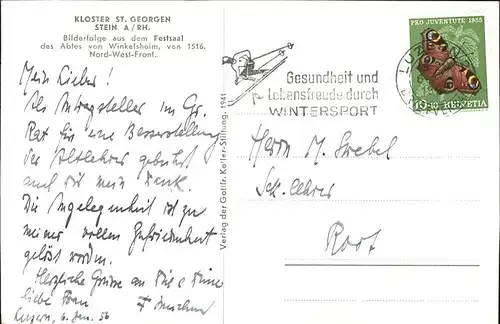 KLOSTER ST. GEORGEN
STEIN A/RH.
Bilderfolge aus dem Festsaal
des Abtes von Winkelsheim, von 1516.
Nord-West-Front.
Mein Lieber!
Als Antragsteller im Gr.
Rat für eine Besserstellung
der Altlehrer gebührt
auch dir mein Dank.
Die Angelegenheit ist zu
meiner vollen Zufriedenheit
gelöst worden.
Herzliche Grüsse an Dich & Deine
liebe Frau
Luzern, 6. Jan. 56
Verlag der Gottfr. Keller-Stiftung, 1941
Gesundheit und
Lebensfreude durch
WINTERSPORT
LUZERN
PRO JUVENTUTE 1955
10+10 HELVETIA
Herrn M. Strebel
Sek. lehrer
Root